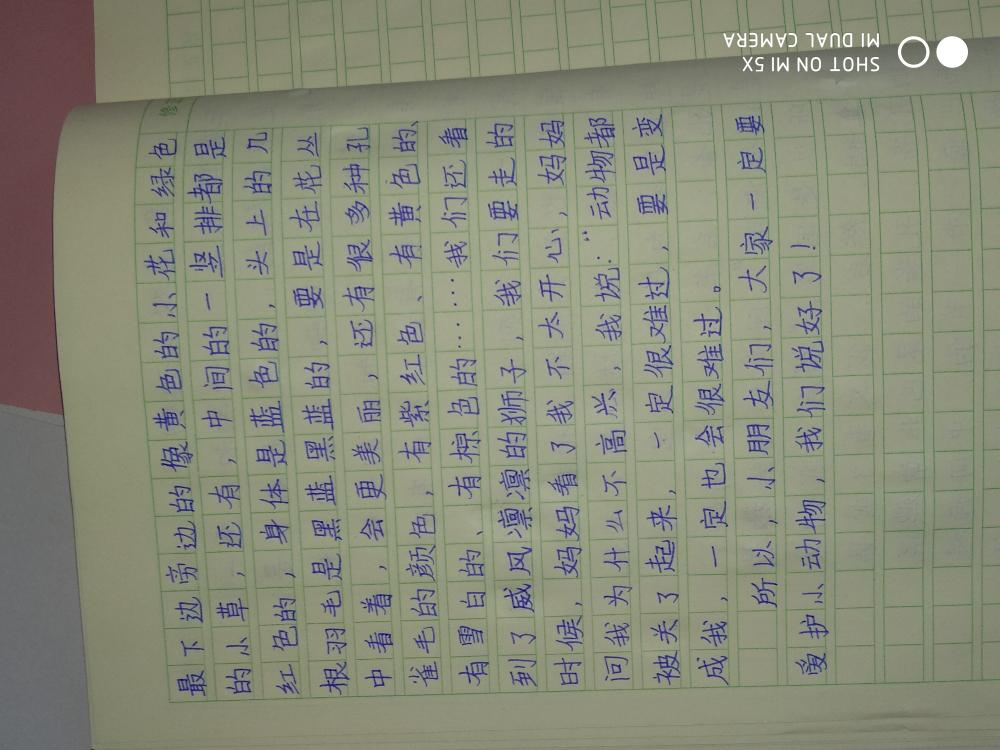 最下边旁边的像黄色的小花和绿色
的小草，还有，中间的一竖排都是
红色的，身体是蓝色的，头上的几
根羽毛是黑蓝黑蓝的，要是在花丛
中看着，会更美丽，还有很多种孔
雀毛的颜色，有紫红色、有黄色的、
有雪白的、有棕色的……我们还看
到了威风凛凛的狮子，我们要走的
时候，妈妈看了我不太开心，妈妈
问我为什么不高兴，我说：“动物都
被关了起来，一定很难过，要是变
成我，一定也会很难过。
所以，小朋友们，大家一定要
爱护小动物，我们说好了！
SHOT ON MI 5X
MI DUAL CAMERA